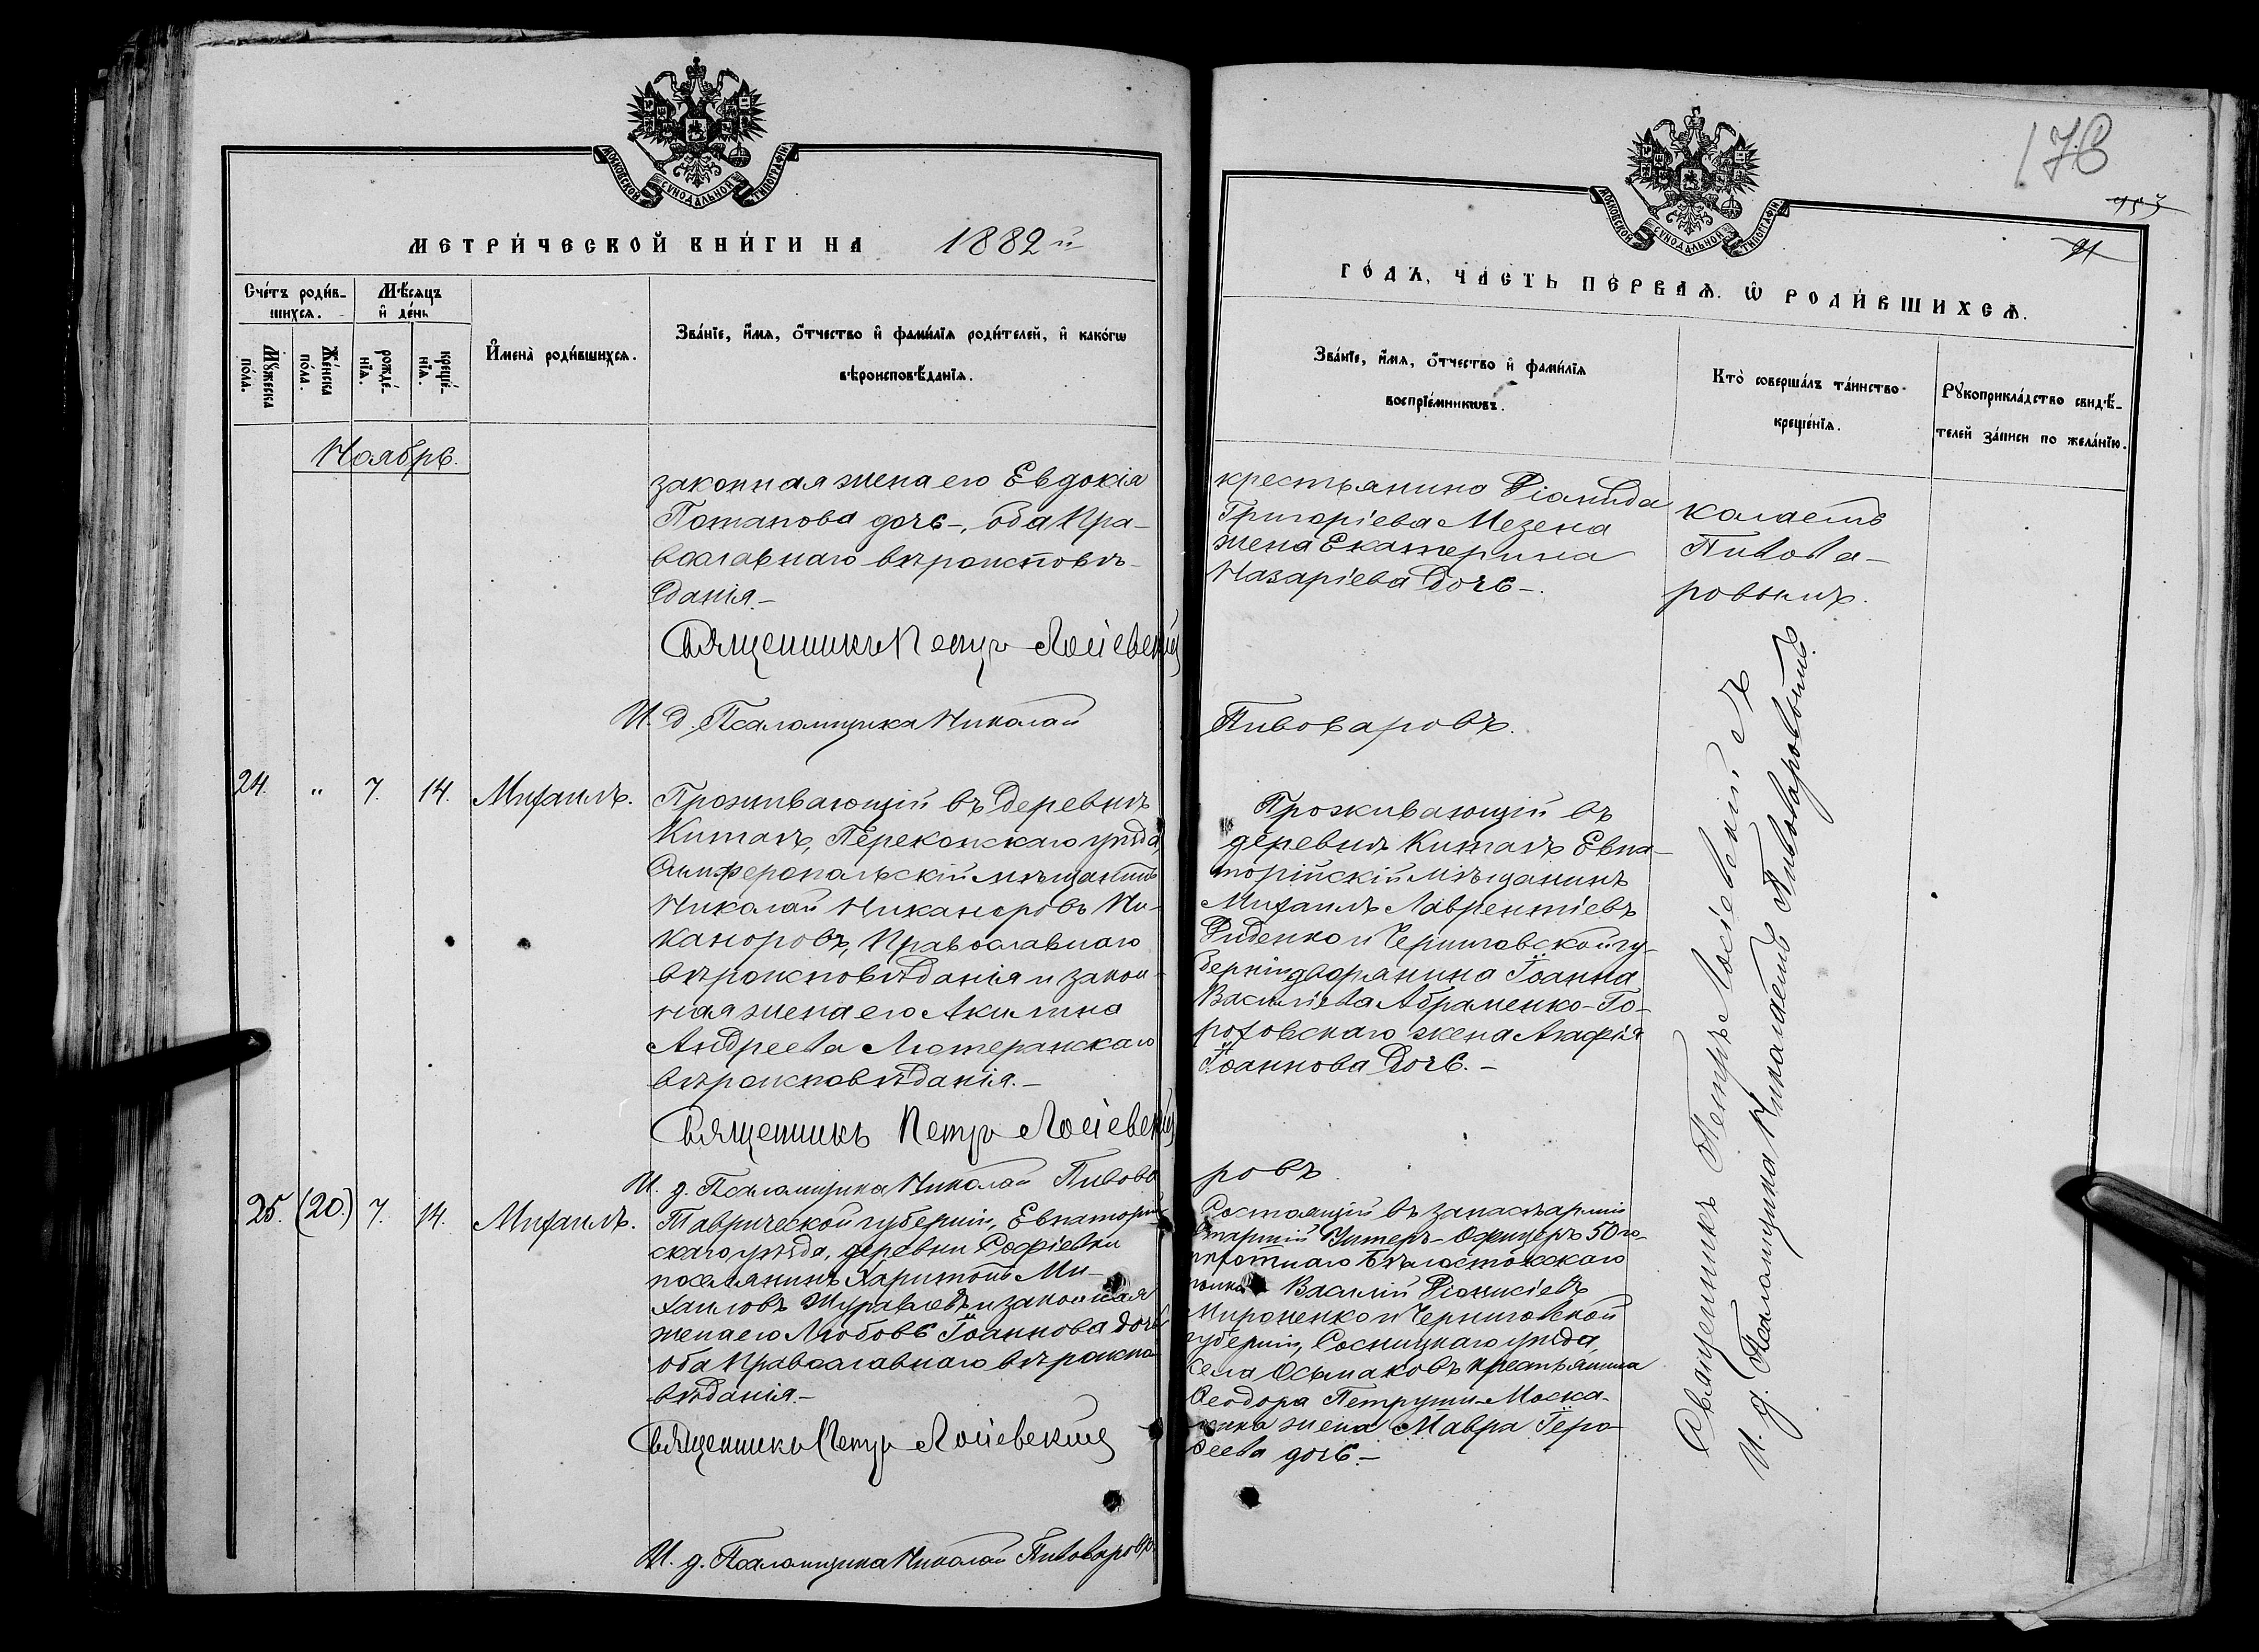 МОСКОВСКОЙ СѴНОДАЛЬНОЙ ТИПОГРАФІИ
МЕТРИ́ЧЕСКОЙ КНИ́ГИ НА 1882 й
Сче́тъ роди́в-
шихсѧ.
Мѣ́сѧцъ
и҆ де́нь
Мꙋ́жеска
по́ла.
Же́нска
по́ла.
рожде́-
нїѧ.
креще́-
нїѧ.
И҆мена̀ роди́вшихсѧ.
Зва́нїе, и҆́мѧ, ѻ҆́тчество и҆ фами́лїѧ роди́телей, и҆ како́гѡ
вѣроисповѣ́данїѧ.
Ноябрь.
законная жена его Евдокія
Потапова дочь-, оба Пра-
вославнаго вѣроисповѣ-
данія.-
Священникъ Петръ Лосіевскій
И. д. Псаломщика Николай
24. " 7. 14. Михаилъ.
Проживающій въ деревнѣ
Китаѣ, Перекопскаго уѣзда,
Симферопольскій мѣщанинъ
Николай Никаноровъ Ни-
каноровъ, Православнаго
вѣроисповѣданія и закон-
ная жена его Акилина
Андреева Лютеранскаго
вѣроисповѣданія.-
Священникъ Петръ Лосіевскій
И. д. Псаломщика Николай Пивова
25. (20.) 7. 14. Михаилъ.
Таврической губерніи, Евпаторій-
скаго уѣзда, деревни Софіевки
поселянинъ Харитонъ Ми-
хаиловъ Журавлевъ и законная
жена его Любовь Іоаннова дочь
оба Православнаго вѣроиспо-
вѣданія.-
Священникъ Петръ Лосіевскій
И. д. Псаломщика Николай Пивоваровъ.
176
953
91
МОСКОВСКОЙ СѴНОДАЛЬНОЙ ТИПОГРАФІИ
ГО́ДЪ, ЧА́СТЬ ПЕ́РВАѦ. Ѡ҆ РОДИ́ВШИХСѦ.
Зва́нїе, и҆́мѧ, ѻ҆́тчество и҆ фами́лїѧ
воспрїе́мникѡвъ.
Кто̀ соверша́лъ та́инство
креще́нїѧ.
Рꙋкоприкла́дство свидѣ́-
телей за́писи по жела́нїю.
крестьянина Ѳіонида
Григоріева Мезена
жена Екатерина
Назаріева дочь-.
колаемъ
Пивова-
ровымъ.
Пивоваровъ.
Проживающій въ
деревнѣ Китаѣ Евпа-
торійскій мѣщанинъ
Михаилъ Лаврентіевъ
Руденко и Черниговской гу-
берніи дворянина Іоанна
Василіева Абраменко-Го-
роховскаго жена Агафія
Іоаннова дочь.-
ровъ.
Состоящій въ запасѣ арміи
Старшій Унтеръ-Офицеръ 50го
пѣхотнаго Бѣлостокскаго
полка Василій Діонисіевъ
Мироненко и Черниговской
губерніи, Сосницкаго уѣзда,
села Осьмаковъ крестьянина
Ѳеодора Петруши-Моска-
жена Мавра Геро-
ѳеева дочь.-
Священникъ Петръ Лосіевскій съ
И. д. Псаломщика Николаемъ Пивоваровымъ.